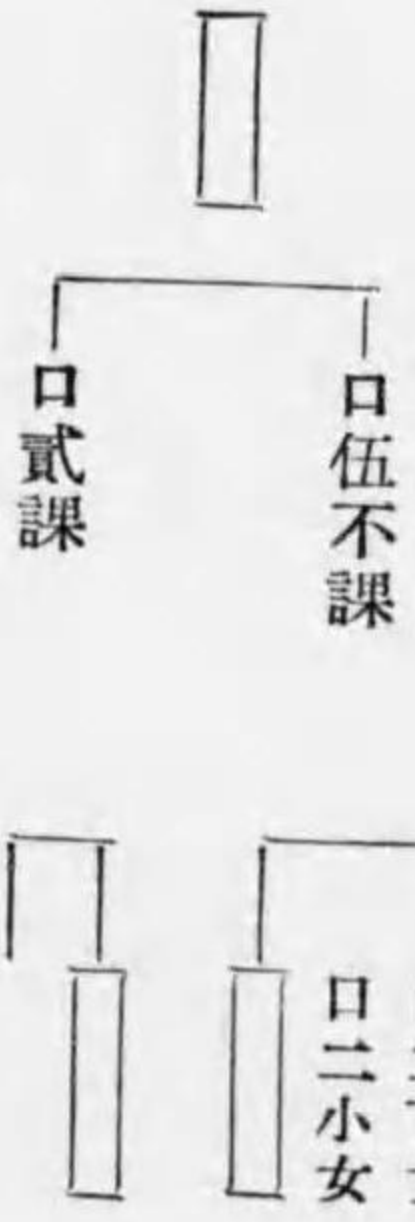 口伍不課
口貳課
口二小女